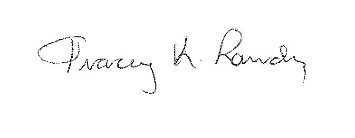 Tracey K. Landry